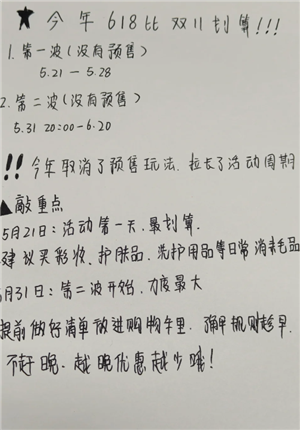 ★ 今年618比双11划算!!!
1.第一波(没有预售)
5.21-5.28
2.第二波(没有预售)
5.31 20:00-6.20
!! 今年取消了预售玩法,拉长了活动周期
▲敲重点
5月21日:活动第一天,最划算.
建议买彩妆、护肤品、洗护用品等日常消耗品
5月31日:第二波开始,力度最大
提前做好清单放进购物车里,确早规则趁早
不赶晚,越晚优惠越少哦!